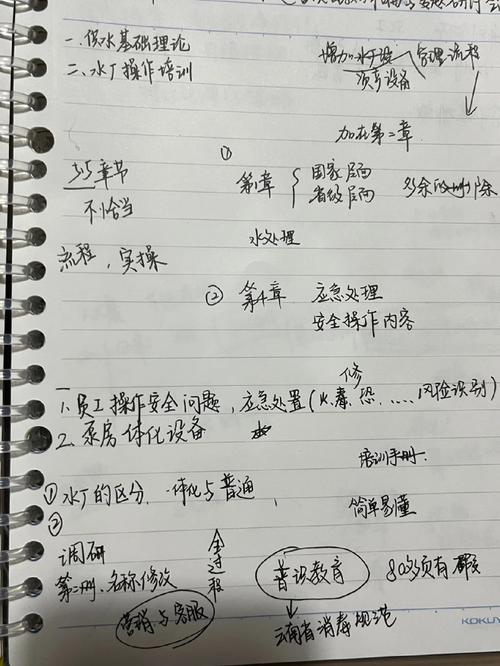 一、供水基础理论
二、水厂操作培训
增加水厂设 管理流程
次序设备
加在第二章
35章节
不恰当
①
第1章 { 国家层面
省级层面
多余的删除
水处理
流程，实操
② 第4章 应急处理
安全操作内容
修
1、员工操作安全问题，应急处置(火.毒.恐.....风险识别)
2、泵房一体化设备 水
培训手册.
①水厂的区分. 一体化与普通
简单易懂
②
调研
第二册.名称修改
营销与客服
全过程
普识教育
80多页有
云南省消毒规范
KOKUY